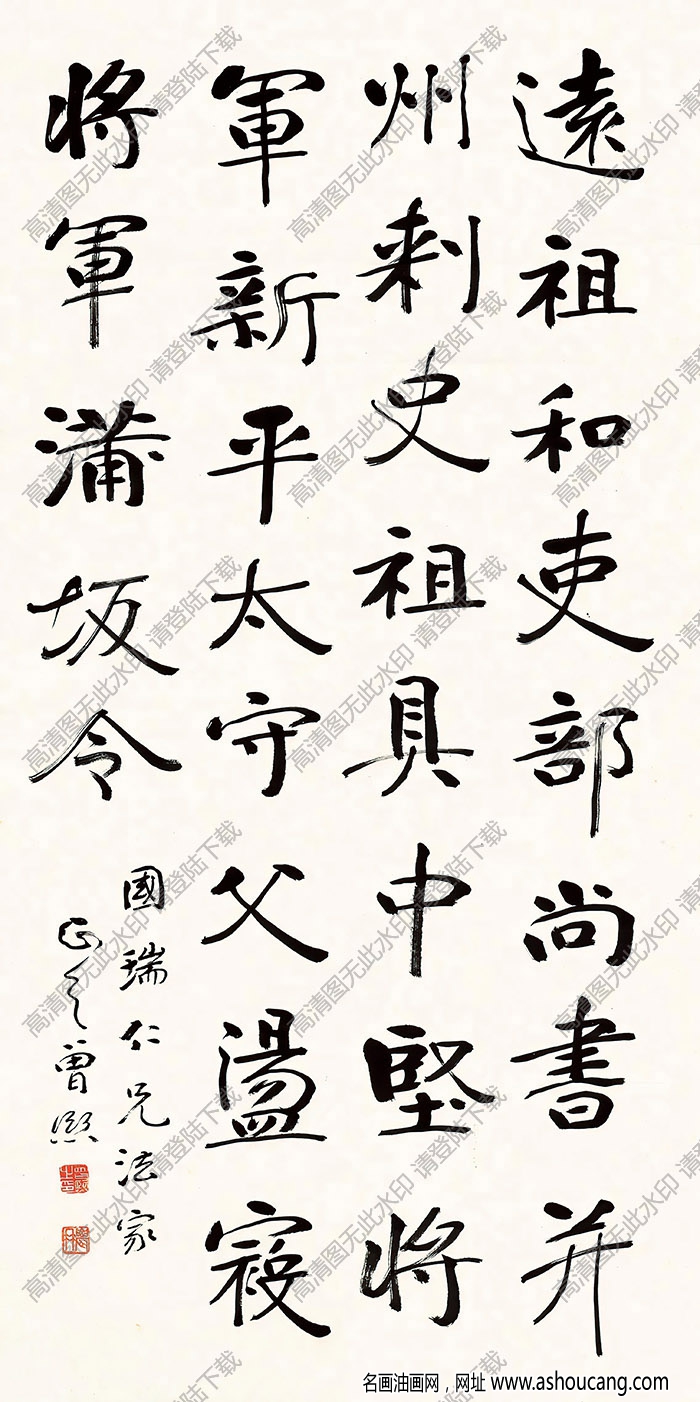 遠祖和吏部尚書并
州刺史祖具中堅將
軍新平太守父盪寇
將軍蒲坂令
國瑞仁兄法家
正之曾熙
高清图无此水印 请登陆下载
名画油画网，网址 www.ashoucang.com